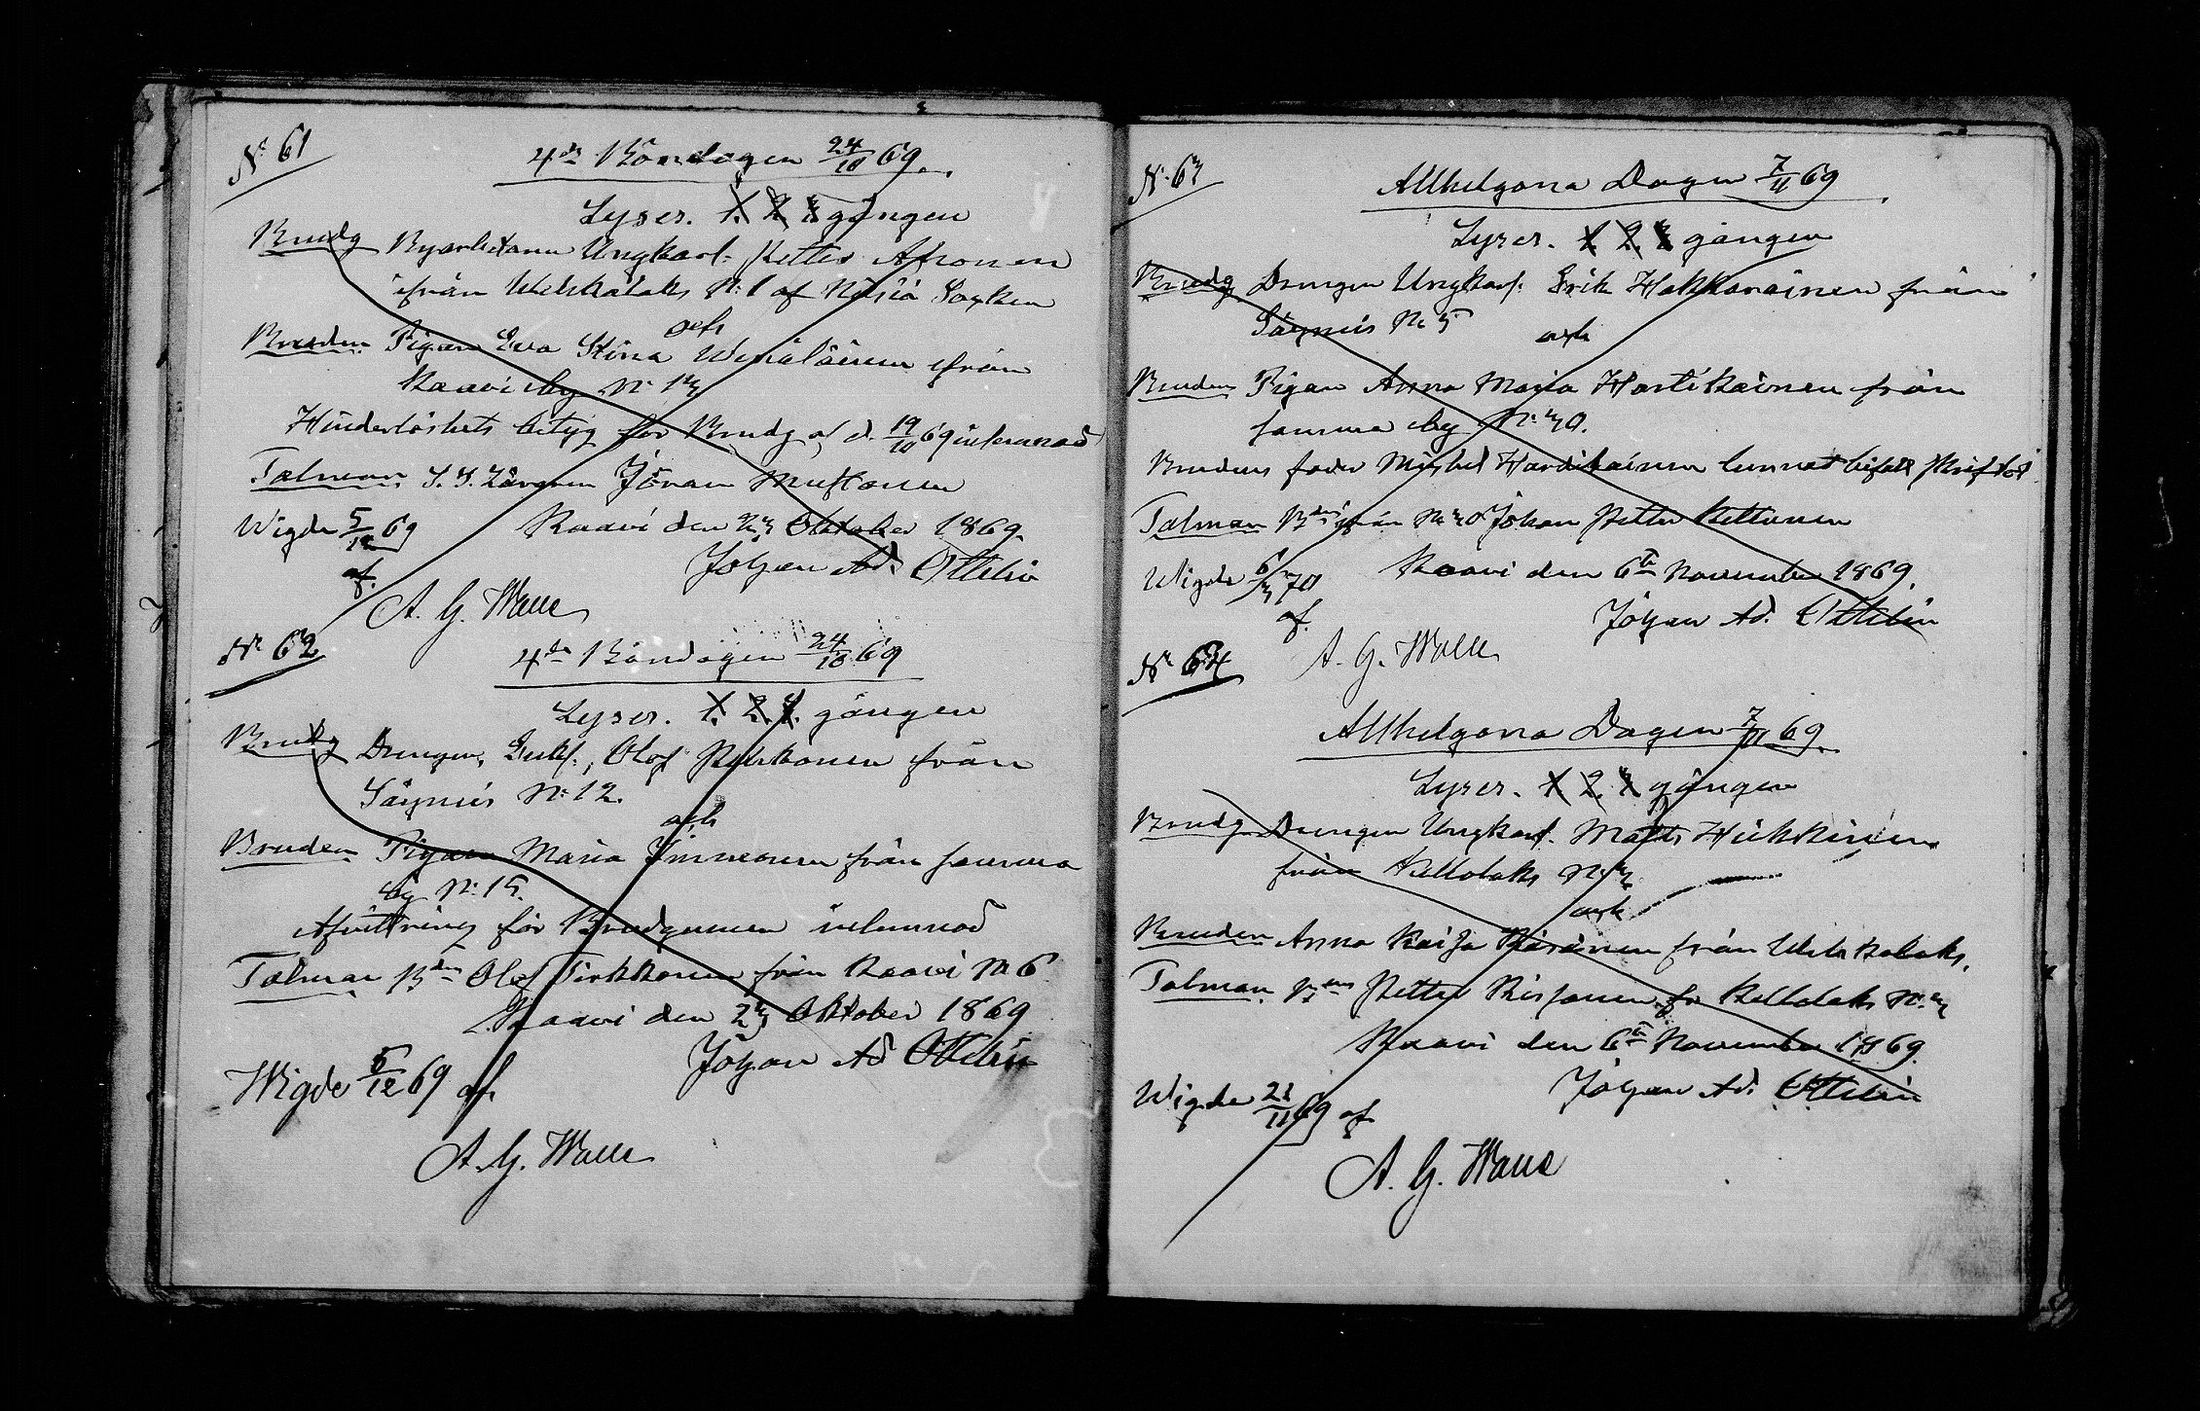 No 61
4de Böndagen 24/10 69.
Lyses. 1. 2. 3 gången
Brudg Nyarbetaren Ungkarl. Petter Ahonen
ifrån Welskalaks No 1 af Nilsiä Socken
och
Bruden Pigan Eva Stina Wenäläinen ifrån
Kaavi by No 13
Hinderlöshets betyg för Brudg af d. 19/10 69 inlemnad
Talman Jöran Mustonen
Wigde 5/12 69
Kaavi den 23 Oktober 1869.
af.
Johan Ad. Ottelin
A. G. Walle
No 62
4de Böndagen 24/10 69
Lyses. 1. 2. 3. gången
Brudg Drengen, Enkl., Olof Pelkonen från
Säyneis No 12.
och
Bruden Pigan Maria Immonen från samma
by No 15.
Afvittring för Brudgumen inlemnad
Talman Bdens Olof Tirkkonen från Kaavi No 6
Kaavi den 23 Oktober 1869
Johan Ad Ottelin
Wigde 5/12 69 af.
A. G. Walle
No 63
Allhelgona Dagen 7/11 69
Lyses. 1 2. 3 gången
Brudg Drengen Ungkarl. Erik Hakkarainen från
Säyneis No 5
och
Bruden Pigan Anna Maria Hartikainen från
samma by No 30.
Brudens fader Mickel Hardikainen lemnat bifall
Talman Bdens från No 30 Johan Petter Kettunen
Wigde 6/3 70
Kaavi den 6te November 1869.
af.
Johan Ad. Ottelin
A. G. Walle
No 64
Allhelgona Dagen 7/11 69.
Lyses. 1 2. 3 gången
Brudg Drengen Ungkarl. Matts Hukkinen
från Kellolaks No 3
och
Bruden Anna Kaisa Räsänen från Welskalaks.
Talman Bdens Petter Rissanen fr Kellolaks No 3
Kaavi den 6te November 1869.
Johan Ad. Ottelin
Wigde 21/11 69 af
A. G. Walle